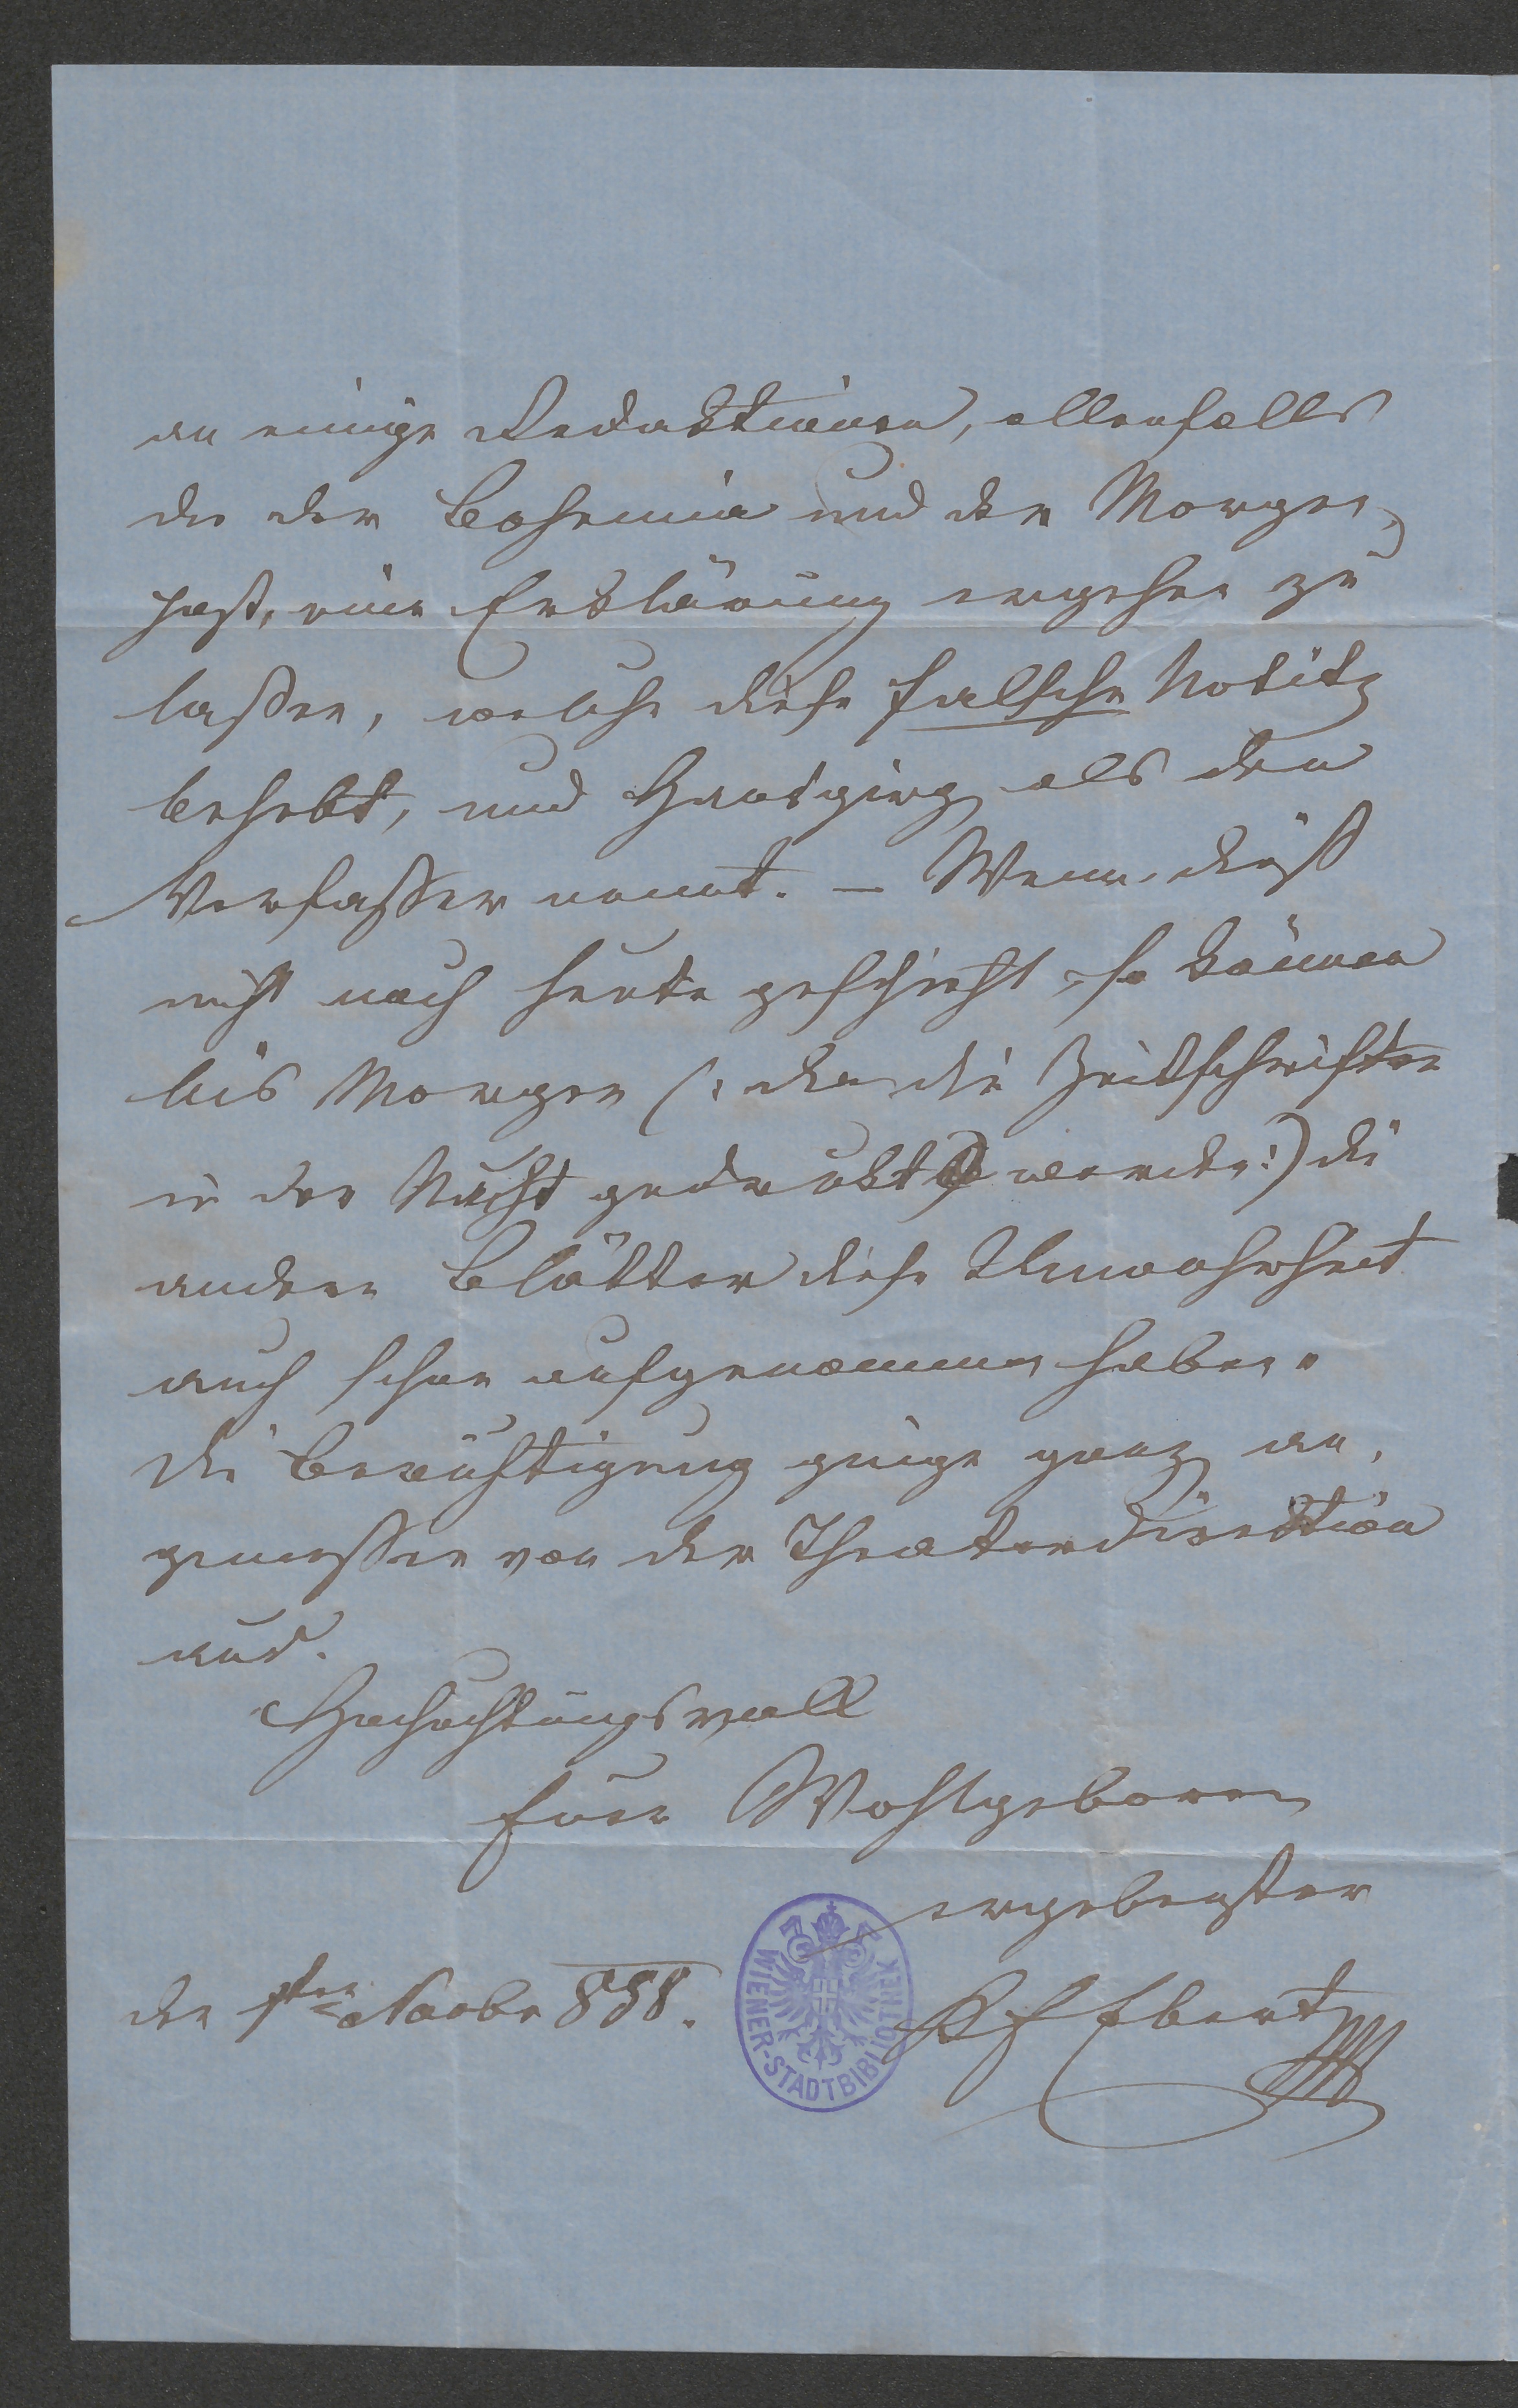 an einige Redaktionen, allenfalls
die der Bohemia und der Morgen-
post, eine Erklärung ergehen zu
laßen, welche diese falsche Notitz
behebt, und als den
Verfasser nennt. – Wenn dieß
nicht noch heute geschieht, so können
bis Morgen (: da die Zeitschriften
in der Nacht gedruckt werden :) die
andern Blätter diese Unwahrheit
auch schon aufgenommen haben.
Die Berichtigung ginge ganz an-
gemessen von der Theaterdirektion
aus.
Hochachtungsvoll
Euer Wohlgeboren
ergebenster
den 1ten Novbr 858.
K E Ebert
WIENER-STADTBIBLIOTHEK